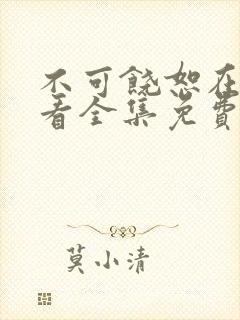 不可饶恕在
看全集免费
莫小清